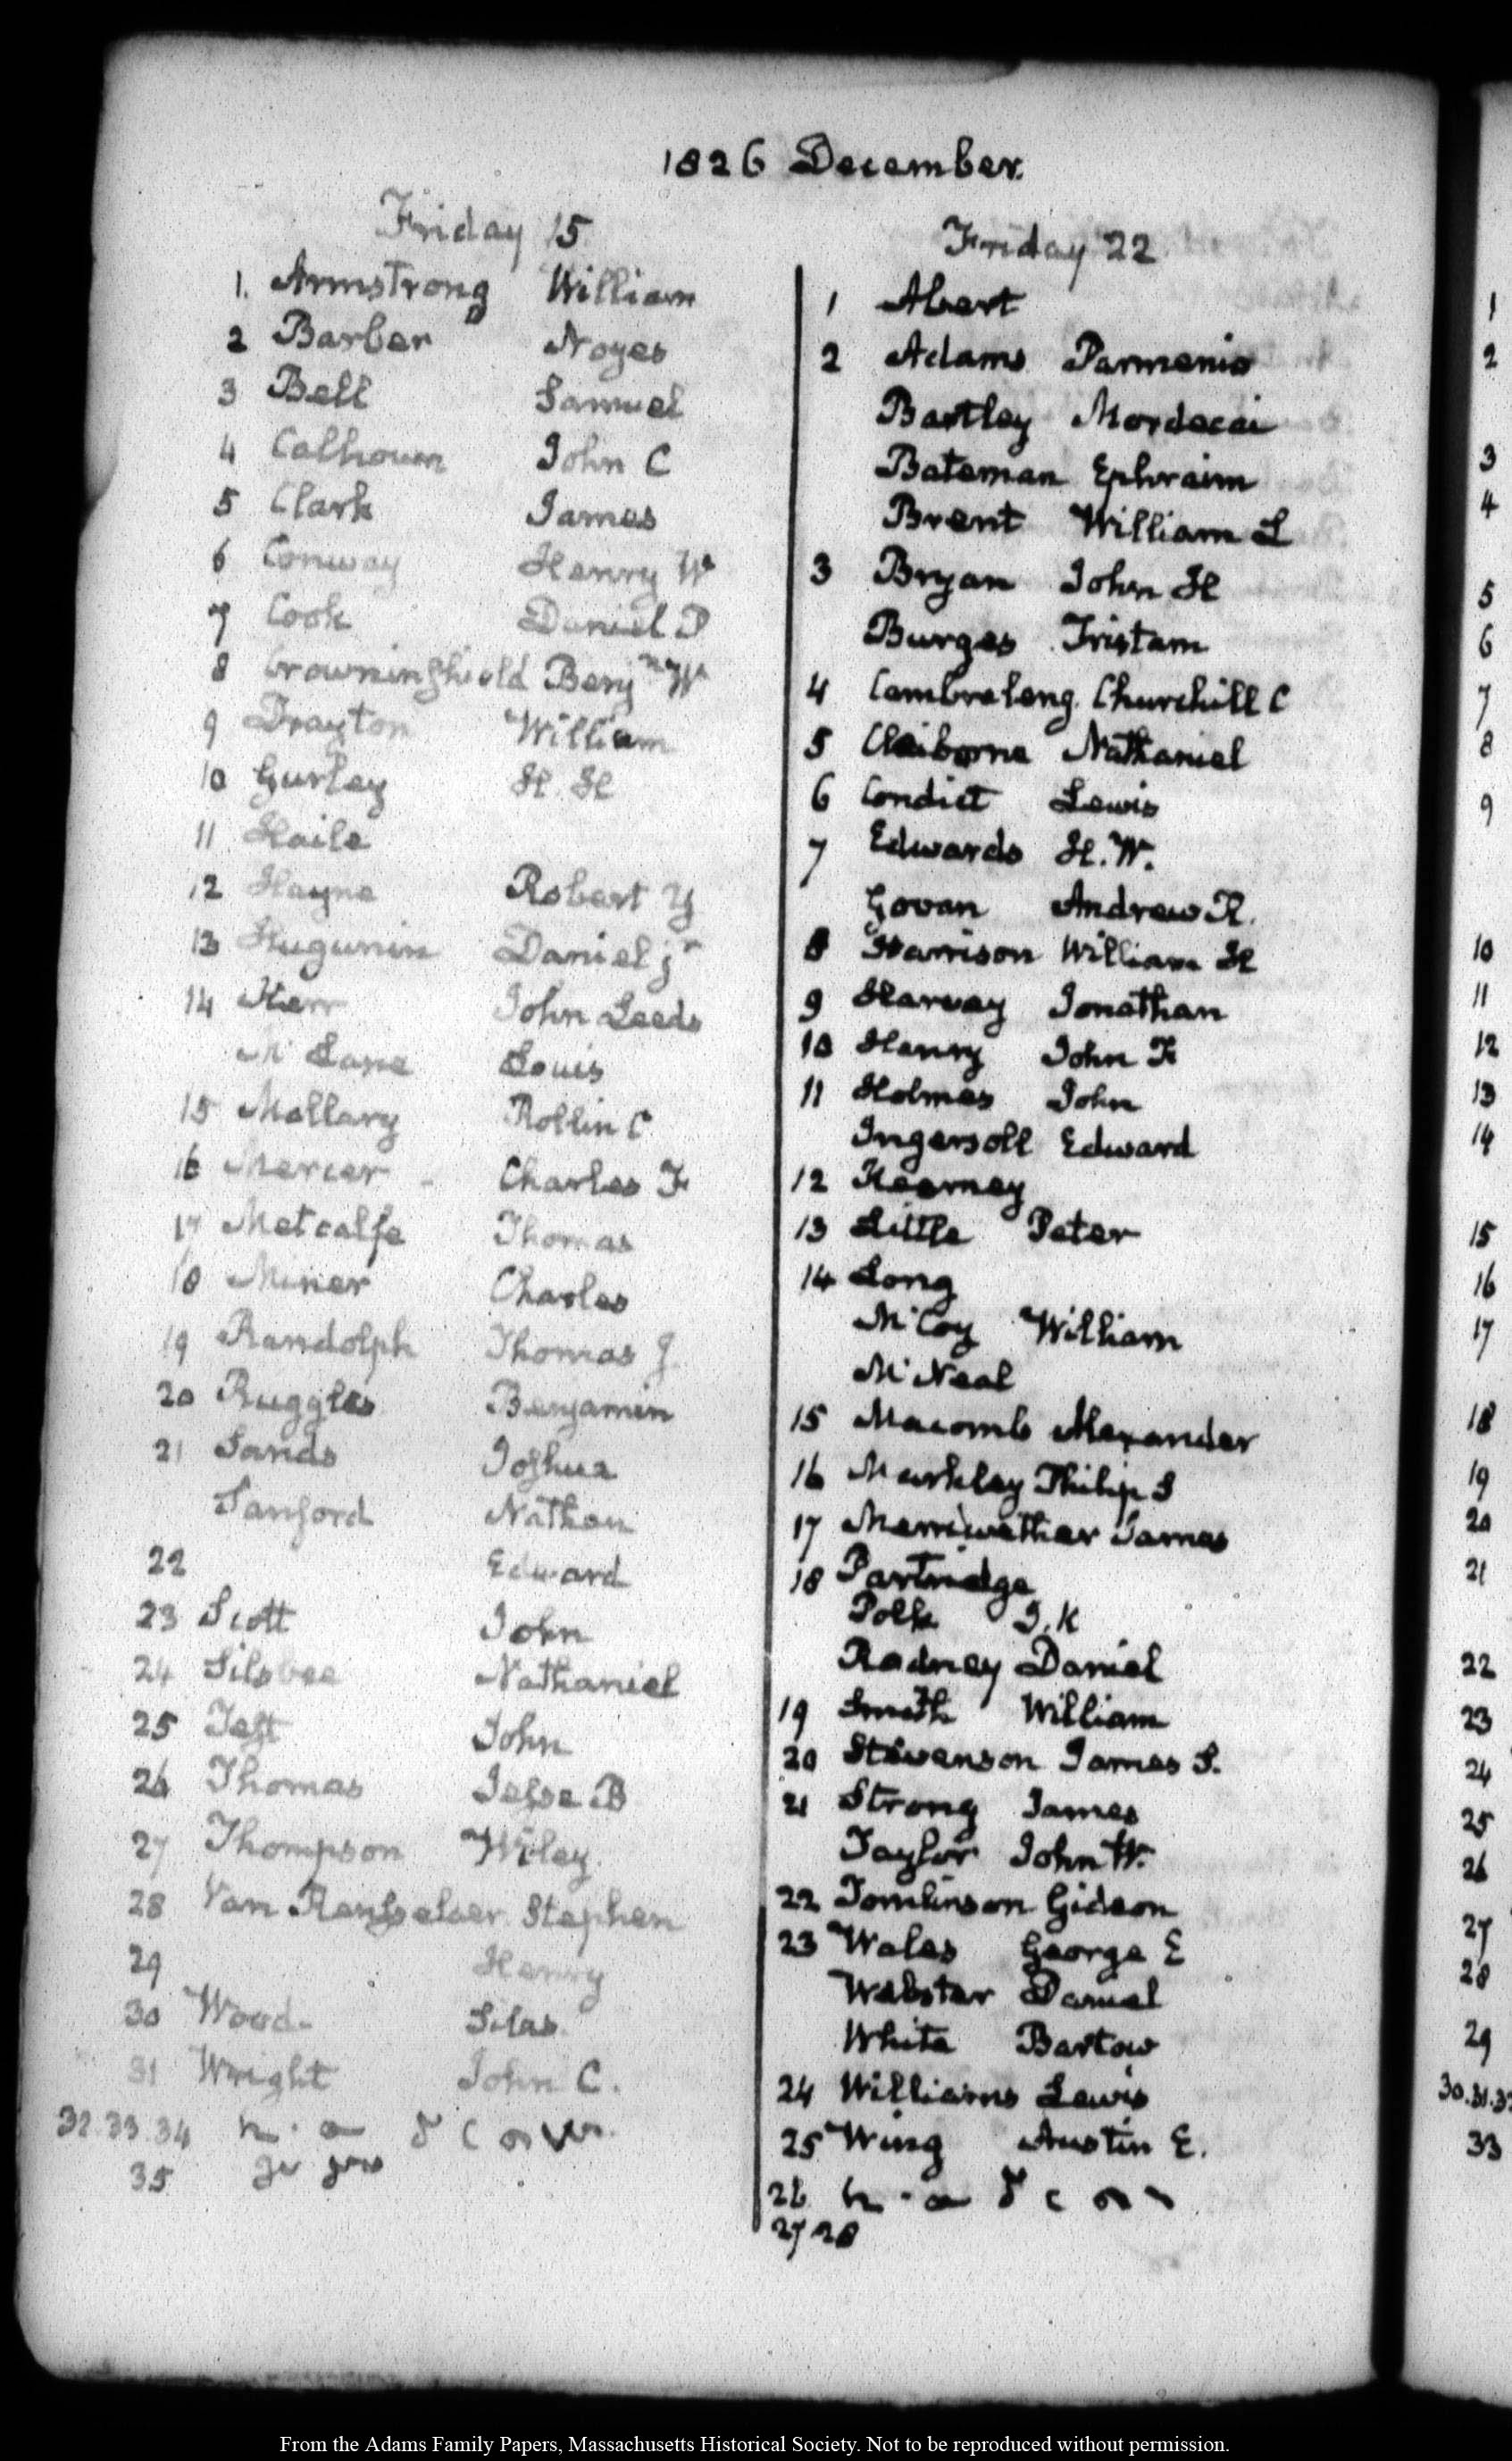 1826 December.
Friday 15
1. Armstrong William
2 Barber Noyes
3 Bell Samuel
4 Calhoun John C
5 Clark James
6 Conway Henry W
7 Cook Daniel P
8 Crowninshield Benjn W
9 Drayton William
10 Gurley H. H
11 Haile
12 Hayne Robert Y
13 Hugunin Daniel jr
14 Kerr John Leeds
McLane Louis
15 Mallary Rollin C
16 Mercer Charles F
17 Metcalfe Thomas
18 Miner Charles
19 Randolph Thomas J
20 Ruggles Benjamin
21 Sands Joshua
Sanford Nathan
22 Edward
23 Scott John
24 Silsbee Nathaniel
25 Test John
26 Thomas Jesse B
27 Thompson Wiley
28 Van Rensselaer Stephen
29 Henry
30 Wood Silas
31 Wright John C.
32.33.34
35
Friday 22
1 Abert
2 Adams Parmenio
Bartley Mordecai
Bateman Ephraim
Brent William L
3 Bryan John H
Burges Tristam
4 Cambreleng Churchill C
5 Claiborne Nathaniel
6 Condict Lewis
7 Edwards H. W.
Govan Andrew R.
8 Harrison William H
9 Harvey Jonathan
10 Henry John F
11 Holmes John
Ingersoll Edward
12 Kearney
13 Little Peter
14 Long
McCoy William
McNeal
15 Macomb Alexander
16 Markley Philip S
17 Merriwether James
18 Partridge
Polk J. K
Rodney Daniel
19 Smith William
20 Stevenson James S.
21 Strong James
Taylor John W.
22 Tomlinson Gideon
23 Wales George E
Webster Daniel
White Bartow
24 Williams Lewis
25 Wing Austin E.
26
27 28
1
2
3
4
5
6
7
8
9
10
11
12
13
14
15
16
17
18
19
20
21
22
23
24
25
26
27
28
29
33
From the Adams Family Papers, Massachusetts Historical Society. Not to be reproduced without permission.